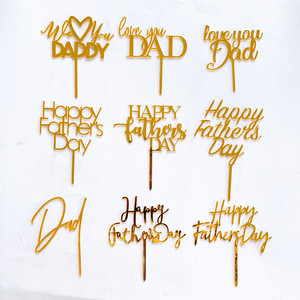 We ♥ You
DADDY
love you
DAD
love you
Dad
Happy
Father's
Day
HAPPY
Fathers
DAY
Happy
Father's
Day
Dad
Happy
Father's Day
Happy
Father's Day